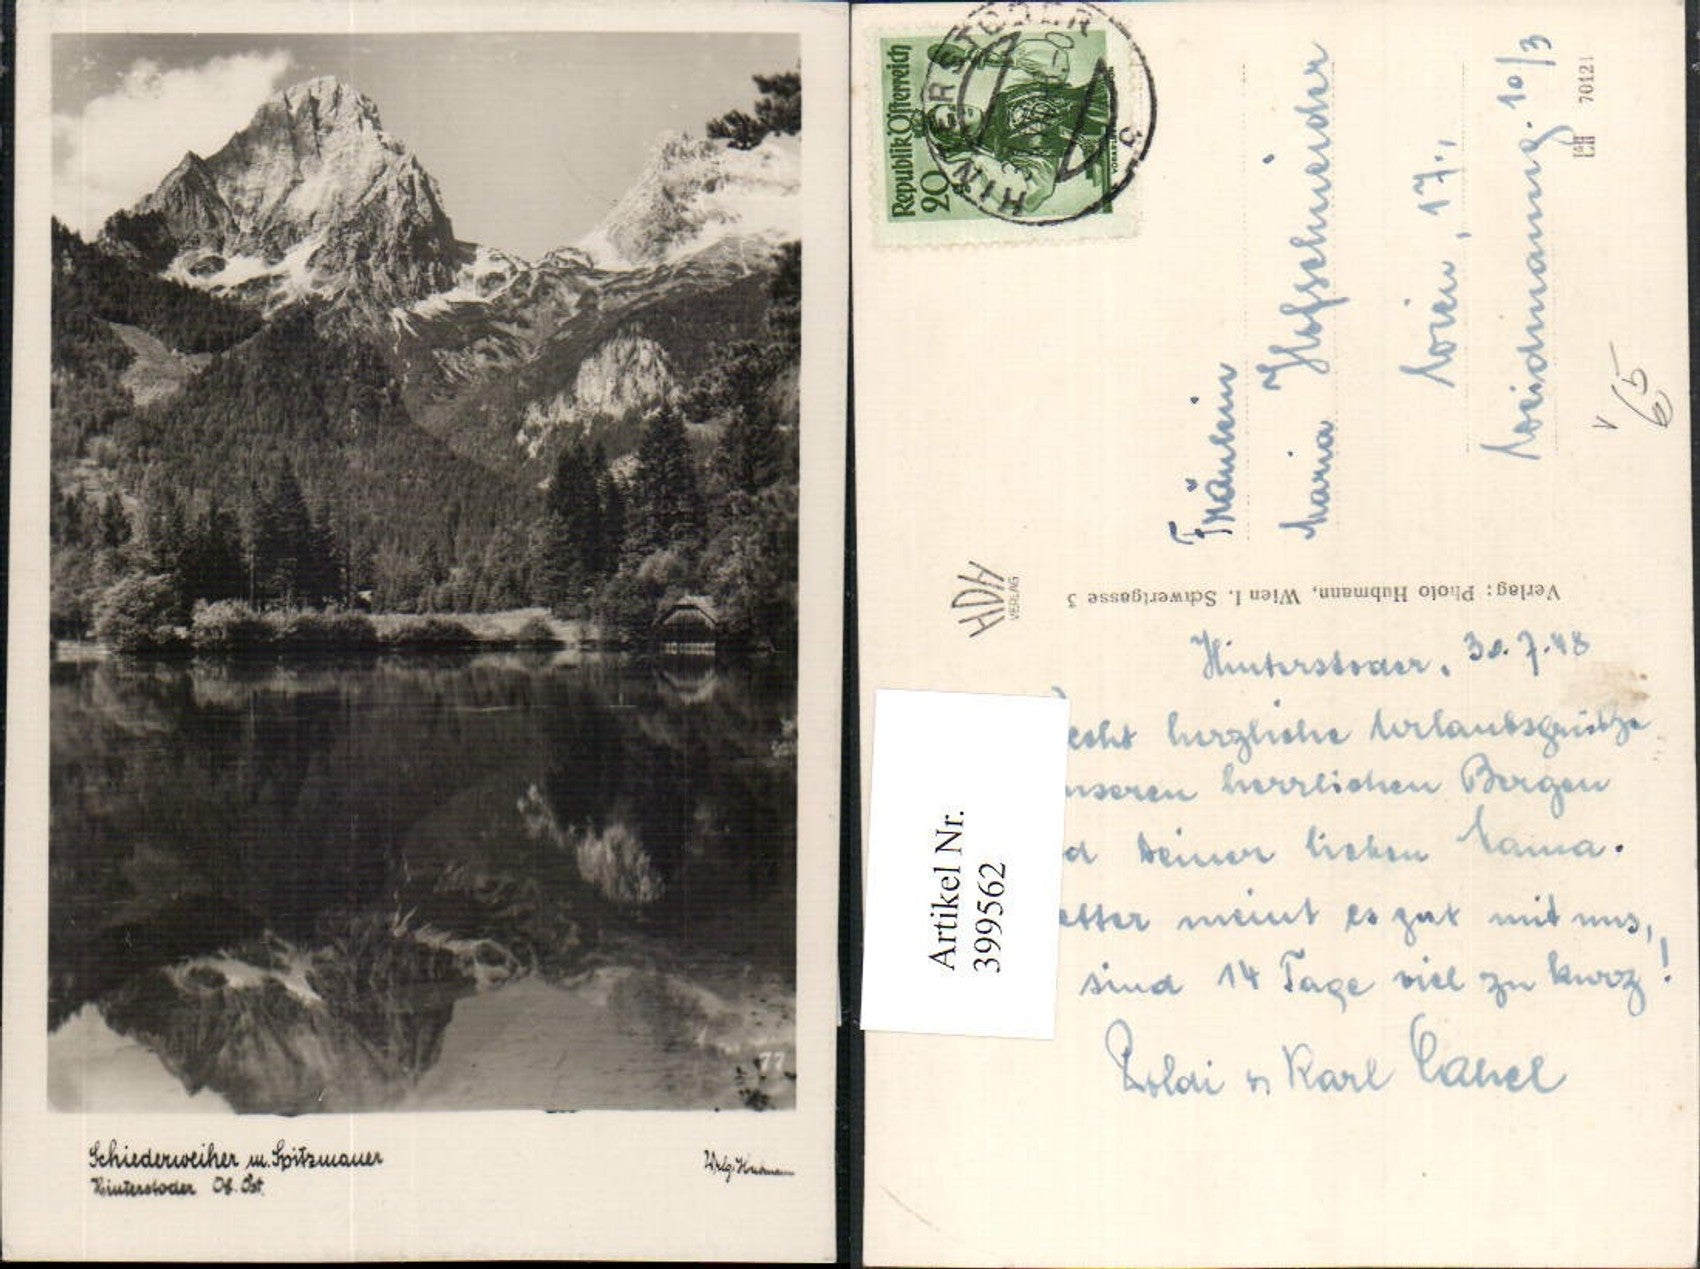 77
Schiederweiher m. Spitzmauer
Hinterstoder Ob. Öst.
Verlg. Hubmann
Republik Österreich
20
HINTERSTODER
Fräulein
Maria Hofschneider
Wien, 17.,
Weidmanng. 10/3
70121
65
HDH
VERLAG
Verlag: Photo Hubmann, Wien I. Schwertgasse 3
Hinterstoder, 30.7.48
echt herzliche Urlaubsgrüße
nseren herrlichen Bergen
d Deiner lieben Mama.
etter meint es gut mit uns,
sind 14 Tage viel zu kurz!
Poldi u. Karl
Artikel Nr.
399562